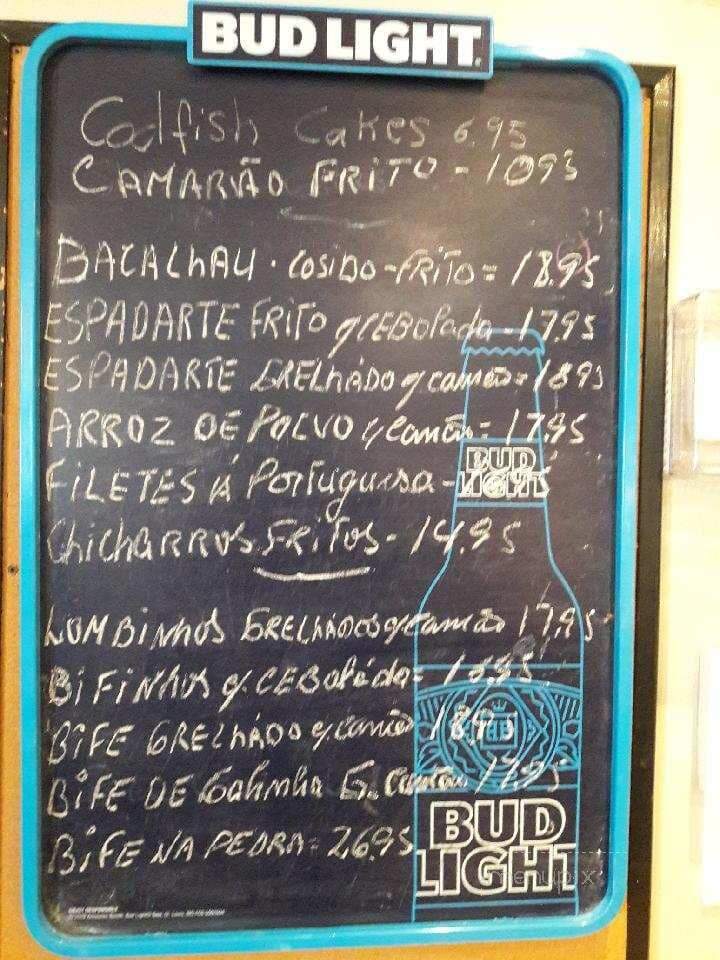 BUD LIGHT
Codfish Cakes 6.95
CAMARÃO FRITO - 1095
BACALHAU. COSIDO-FRITO = 18.95
ESPADARTE FRITO c/CEBOlada - 17.95
ESPADARTE GRELHÁDO c/camão = 1895
ARROZ DE POLVO c/Camão = 17.95
FILETES Á PORTuguesa -
BUD
LIGHT
ChiCHARROS FRITOS - 14.95
LOMBINHOS GRELHÁDOS c/camão 17.95
BIFINHOS c/CEBOláda =
BIFE GRELHÁDO c/camão
BIFE DE Galinha G. Camão 17.95
BIFE NA PEDRA = 26.95
BUD
LIGHT
menupix